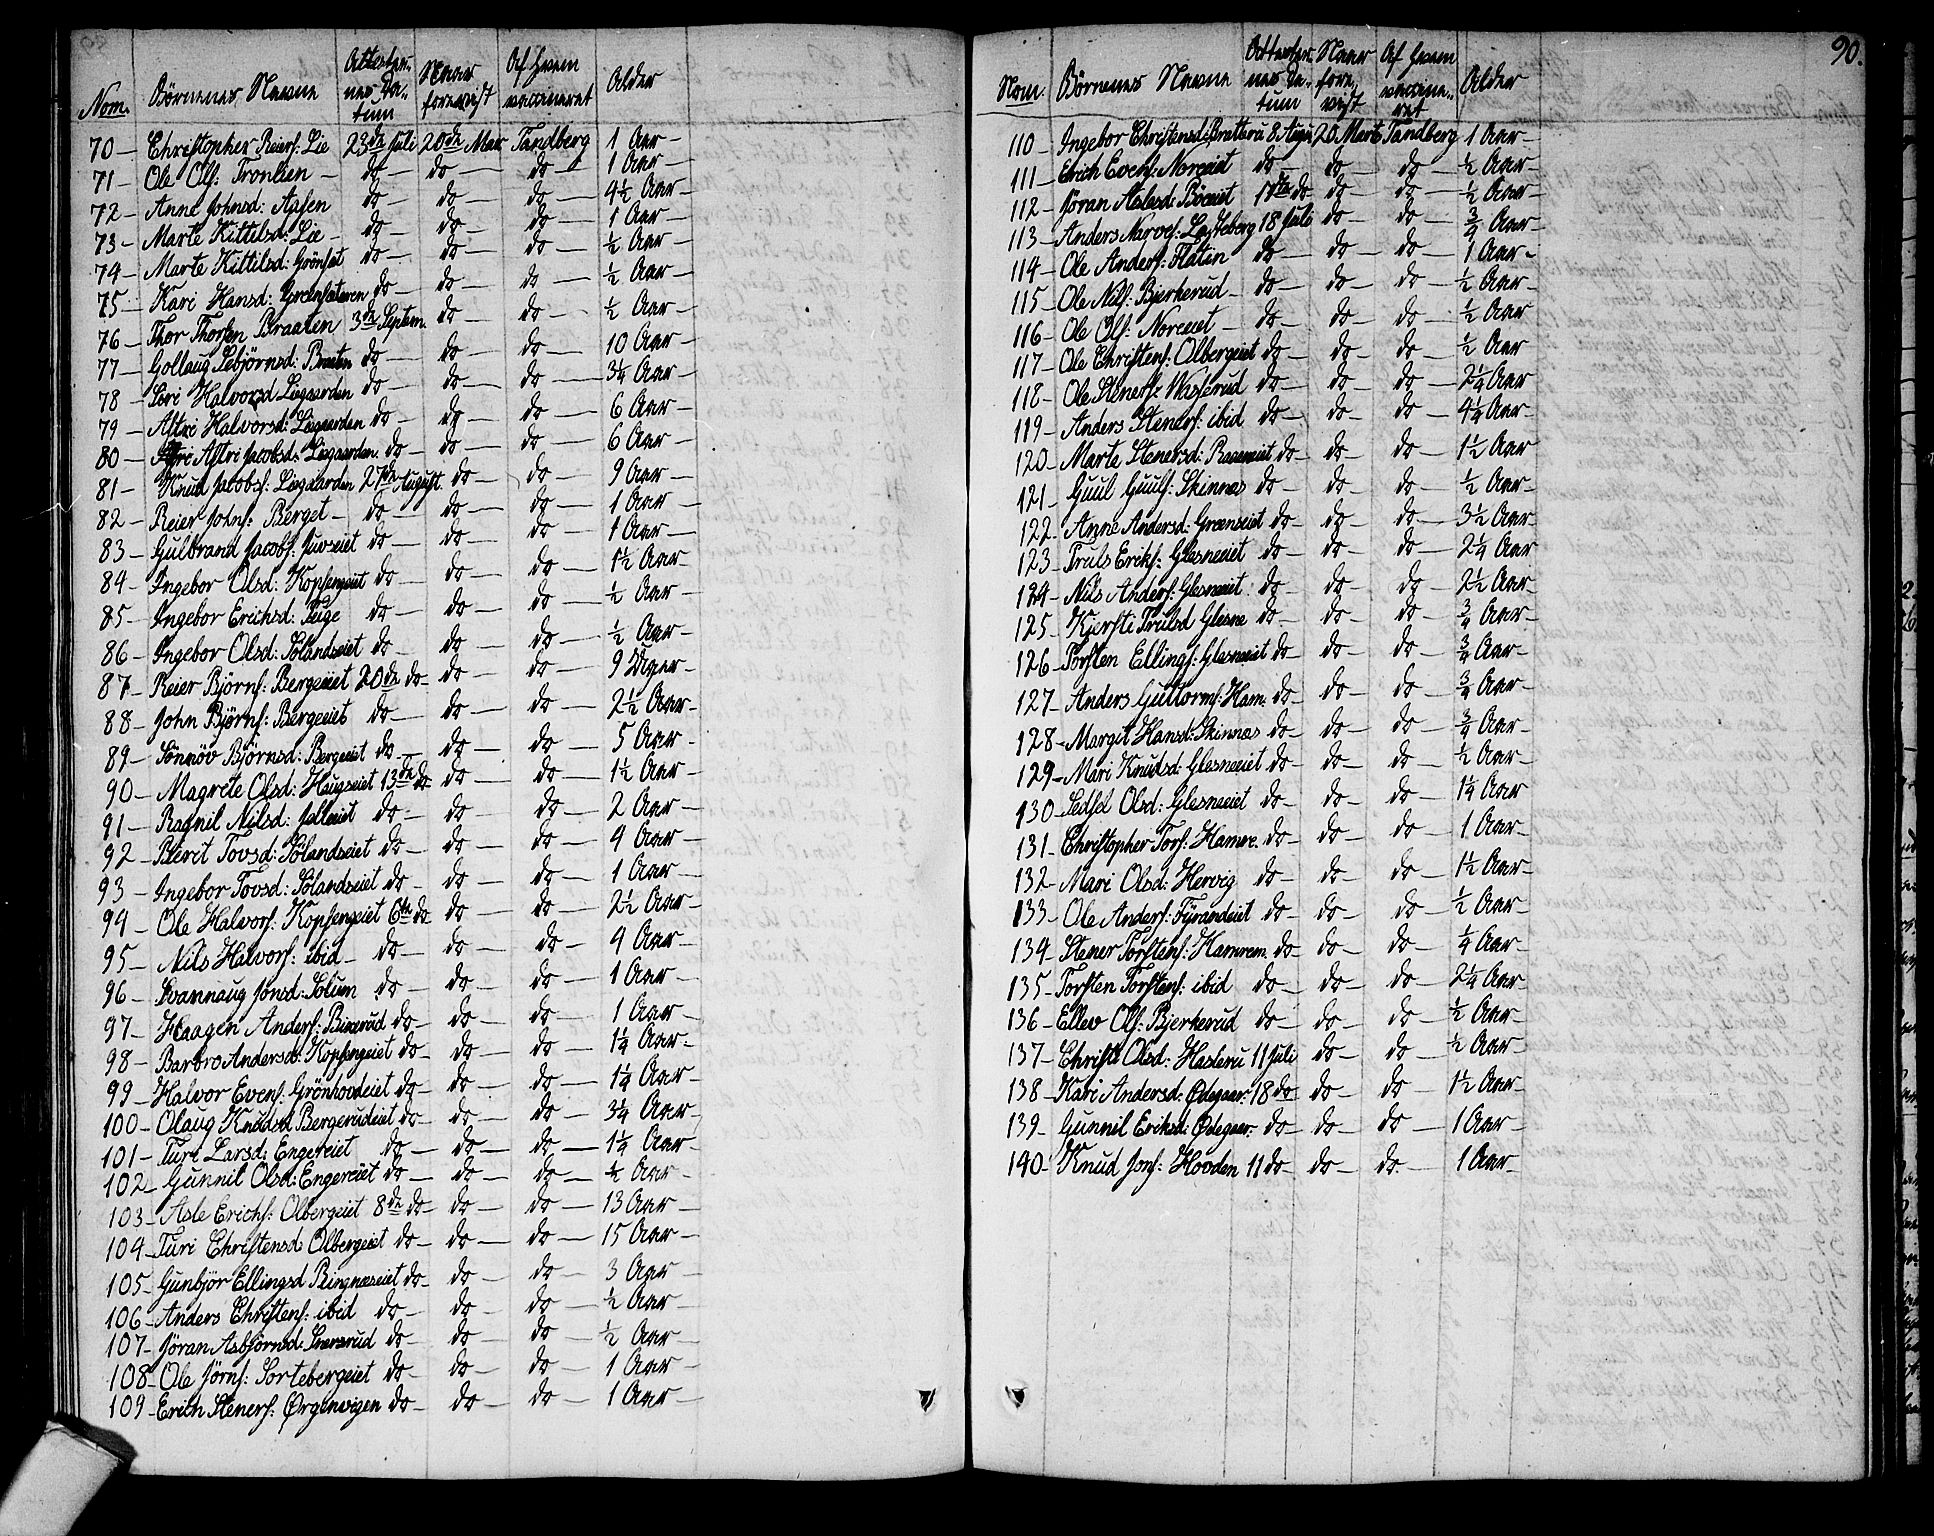 Nom. Börnenes Navne Attester- nes Da- tum Naar forevist Af hvem vaccineret Alder
70 — Christopher Reiers: Lie 23de Juli 20de Mar Tandberg 1 Aar —
71 — Ole Ols: Tronlien — do — do — do — 1 Aar —
72 — Anne Johnsd: Aasen do — do — do — 4½ Aar —
73 — Marte Kittilsd: Lie — do — do — do — 1 Aar —
74 — Marte Kittilsd: Grönset do — do — do — ½ Aar —
75 — Kari Hansd: Groensæteren do — do — do — ½ Aar —
76 — Thor Thorsen Braaten 3de Septem. do — do — ½ Aar —
77 — Gollaug Sebjörnsd: Braaten do — do — do — 10 Aar —
78 — Siri Halvorsd Liegaarden do — do — do — 3¼ Aar —
79 — Astri Halvorsd: Liegaarden do — do — do — 6 Aar —
80 — Astri Jacobsd: Liegaarden do — do — do — 6 Aar —
81 — Knud Jacobs: Liegaarden 27de August do — do — 9 Aar —
82 — Reier Johns: Berget — do — do — do — 1 Aar —
83 — Gulbrand Jacobs: Juvseiet do — do — do — 1 Aar —
84 — Ingebor Olsd: Kopsengeiet do — do — do — 1½ Aar —
85 — Ingebor Erichsd: Teige do — do — do — ½ Aar —
86 — Ingebor Olsd: Sölandseiet do — do — do — ½ Aar —
87 — Reier Björns: Bergeiet 20de do — do — do — 9 Uger —
88 — John Björns: Bergeeiet do — do — do — 2½ Aar —
89 — Sönnöv Björnsd: Bergeeiet do — do — do — 5 Aar —
90 — Magrete Olsd: Haugseiet 13de do do — do — 1½ Aar —
91 — Ragnil Nilsd: Jelleeiet do — do — do — 2 Aar —
92 — Berit Tovsd: Sölandseiet do — do — do — 4 Aar —
93 — Ingebor Tovsd: Sölandseiet do — do — do — 1 Aar —
94 — Ole Halvors: Kopsengeiet 6te do do — do — 2½ Aar —
95 — Nils Halvors: ibid — do — do — do — 4 Aar —
96 — Svannaug Jonsd: Solum do — do — do — 1 Aar —
97 — Haagen Anders: Bixerud do — do — do — 1 Aar —
98 — Barbro Andersd: Kopsengeiet do — do — do — 1¼ Aar —
99 — Halvor Evens: Grönhovdeiet do — do — do — 1¼ Aar —
100 — Olaug Knudsd Bergerudeiet do — do — do — 3¼ Aar —
101 — Turi Larsd: Engereiet do — do — do — 1¼ Aar —
102 — Gunnil Olsd: Engereiet do — do — do — ¼ Aar —
103 — Asle Erichs: Olbergeiet 8de do — do — do — 13 Aar —
104 — Turi Christensd: Olbergeiet do — do — do — 15 Aar —
105 — Gunbjör Ellingsd Ringnæseiet do — do — do — 3 Aar —
106 — Anders Christens: ibid do — do — do — ½ Aar —
107 — Jöran Asbjörnsd: Sversrud do — do — do — ½ Aar —
108 — Ole Jörns: Sortebergeiet do — do — do — 1 Aar —
109 — Erich Steners: Ørgenvigen do — do — do — 1 Aar —
90.
Nom. Börnenes Navne Attester- nes Da- tum Naar fore- vist Af hvem vaccine- ret Alder
110 — Ingebor Christensd: Bratteru 8 Augu. 20 Marts Tandberg 1 Aar —
111 — Erich Evens: Noreeiet do — do — do — ½ Aar —
112 — Jöran Aslesd: Böeeiet 17de do do — do — ½ Aar —
113 — Anders Narves: Lasteberg 18 Juli do — do — ¾ Aar —
114 — Ole Anders: Flatin — do — do — do — 1 Aar —
115 — Ole Nils: Bjerkerud — do — do — do — ½ Aar —
116 — Ole Ols: Noreeiet — do — do — do — ½ Aar
117 — Ole Christens: Olbergeiet do — do — do — ½ Aar
118 — Ole Steners: Waserud do — do — do — 2¼ Aar
119 — Anders Steners: ibid do — do — do — 4¼ Aar —
120 — Marte Stenersd: do — do — do — 1½ Aar
121 — Guul Guuls: Skinnes do — do — do — ½ Aar —
122 — Anne Andersd: Grænseiet do — do — do — 3½ Aar —
123 — Truls Eriks: Glesneeiet do — do — do — 2¼ Aar
124 — Nils Anders: Glesneeiet do — do — do — 2½ Aar —
125 — Kjersti Trulsd Glesne do — do — do — ¾ Aar —
126 — Torsten Ellings: Glesneeiet do — do — do — ¾ Aar —
127 — Anders Guttorms: Ham. do — do — do — ¾ Aar —
128 — Margit Hansd: Skinnes do — do — do — ¾ Aar —
129 — Mari Knudsd: Glesneeiet do — do — do — ½ Aar —
130 — Sedsel Olsd: Glesneeiet do — do — do — 1¼ Aar
131 — Christopher Tors: Hamre. do — do — do — 1 Aar —
132 — Mari Olsd: Hervig do — do — do — 1½ Aar —
133 — Ole Anders: Fyrandeiet do — do — do — ½ Aar —
134 — Stener Torstens: Hamrem. do — do — do — ¼ Aar —
135 — Torsten Torstens: ibid do — do — do — 2¼ Aar
136 — Ellev Ols: Bjerkerud do — do — do — ½ Aar —
137 — Christi Olsd: Hasleru 11 Juli do — do — ½ Aar —
138 — Kari Andersd: Ødegaar: 18 do — do — do — 1½ Aar —
139 — Gunnil Eriksd: Ødegaar: do — do — do — 1 Aar —
140 — Knud Jons: Hovden 11 do — do — do — 1 Aar —